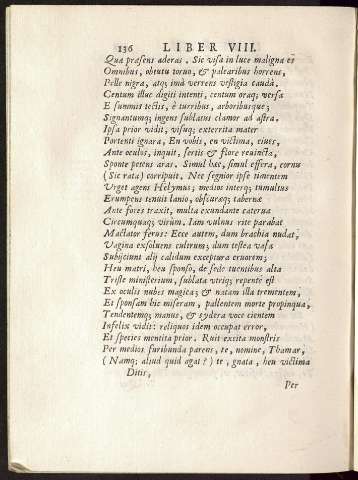 136 LIBER VIII.
Qua præsens aderas. Sic visa in luce maligna es
Omnibus, obtutu toruo, & palearibus horrens,
Pelle nigra, atq; imà verrens vestigia caudà.
Centum illuc digiti intenti, centum oraq; versa
E summis tectis, è turribus, arboribusque;
Signantumq; ingens sublatus clamor ad astra.
Ipsa prior vidit, visuq; exterrita mater
Portenti ignara, En vobis, en victima, ciues,
Ante oculos, inquit, sertis & flore reuincta,
Sponte petens aras. Simul hæc, simul effera, cornu
(Sic rata) corripuit. Nec segnior ipse timentem
Urget agens Helymus; medios interq; tumultus
Erumpens tenuit lanio, obscuræq; tabernæ
Ante fores traxit, multa exundante caterua
Circumquaq; virûm. Iam vulnus rite parabat
Mactator ferus: Ecce autem, dum brachia nudat,
Vagina exsoluens cultrum; dum testea vasa
Subijciunt alij calidum exceptura cruorem;
Heu matri, heu sponso, de sede tuentibus alta
Triste ministerium, sublata vtriq; repente est
Ex oculis nubes magica; & natam illa trementem,
Et sponsam hic miseram, pallentem morte propinqua,
Tendentemq; manus, & sydera voce cientem
Infelix vidit: reliquos idem occupat error,
Et species mentita prior. Ruit excita monstris
Per medios furibunda parens, te, nomine, Thamar,
(Namq; aliud quid agat?) te, gnata, heu victima
Ditis,
Per